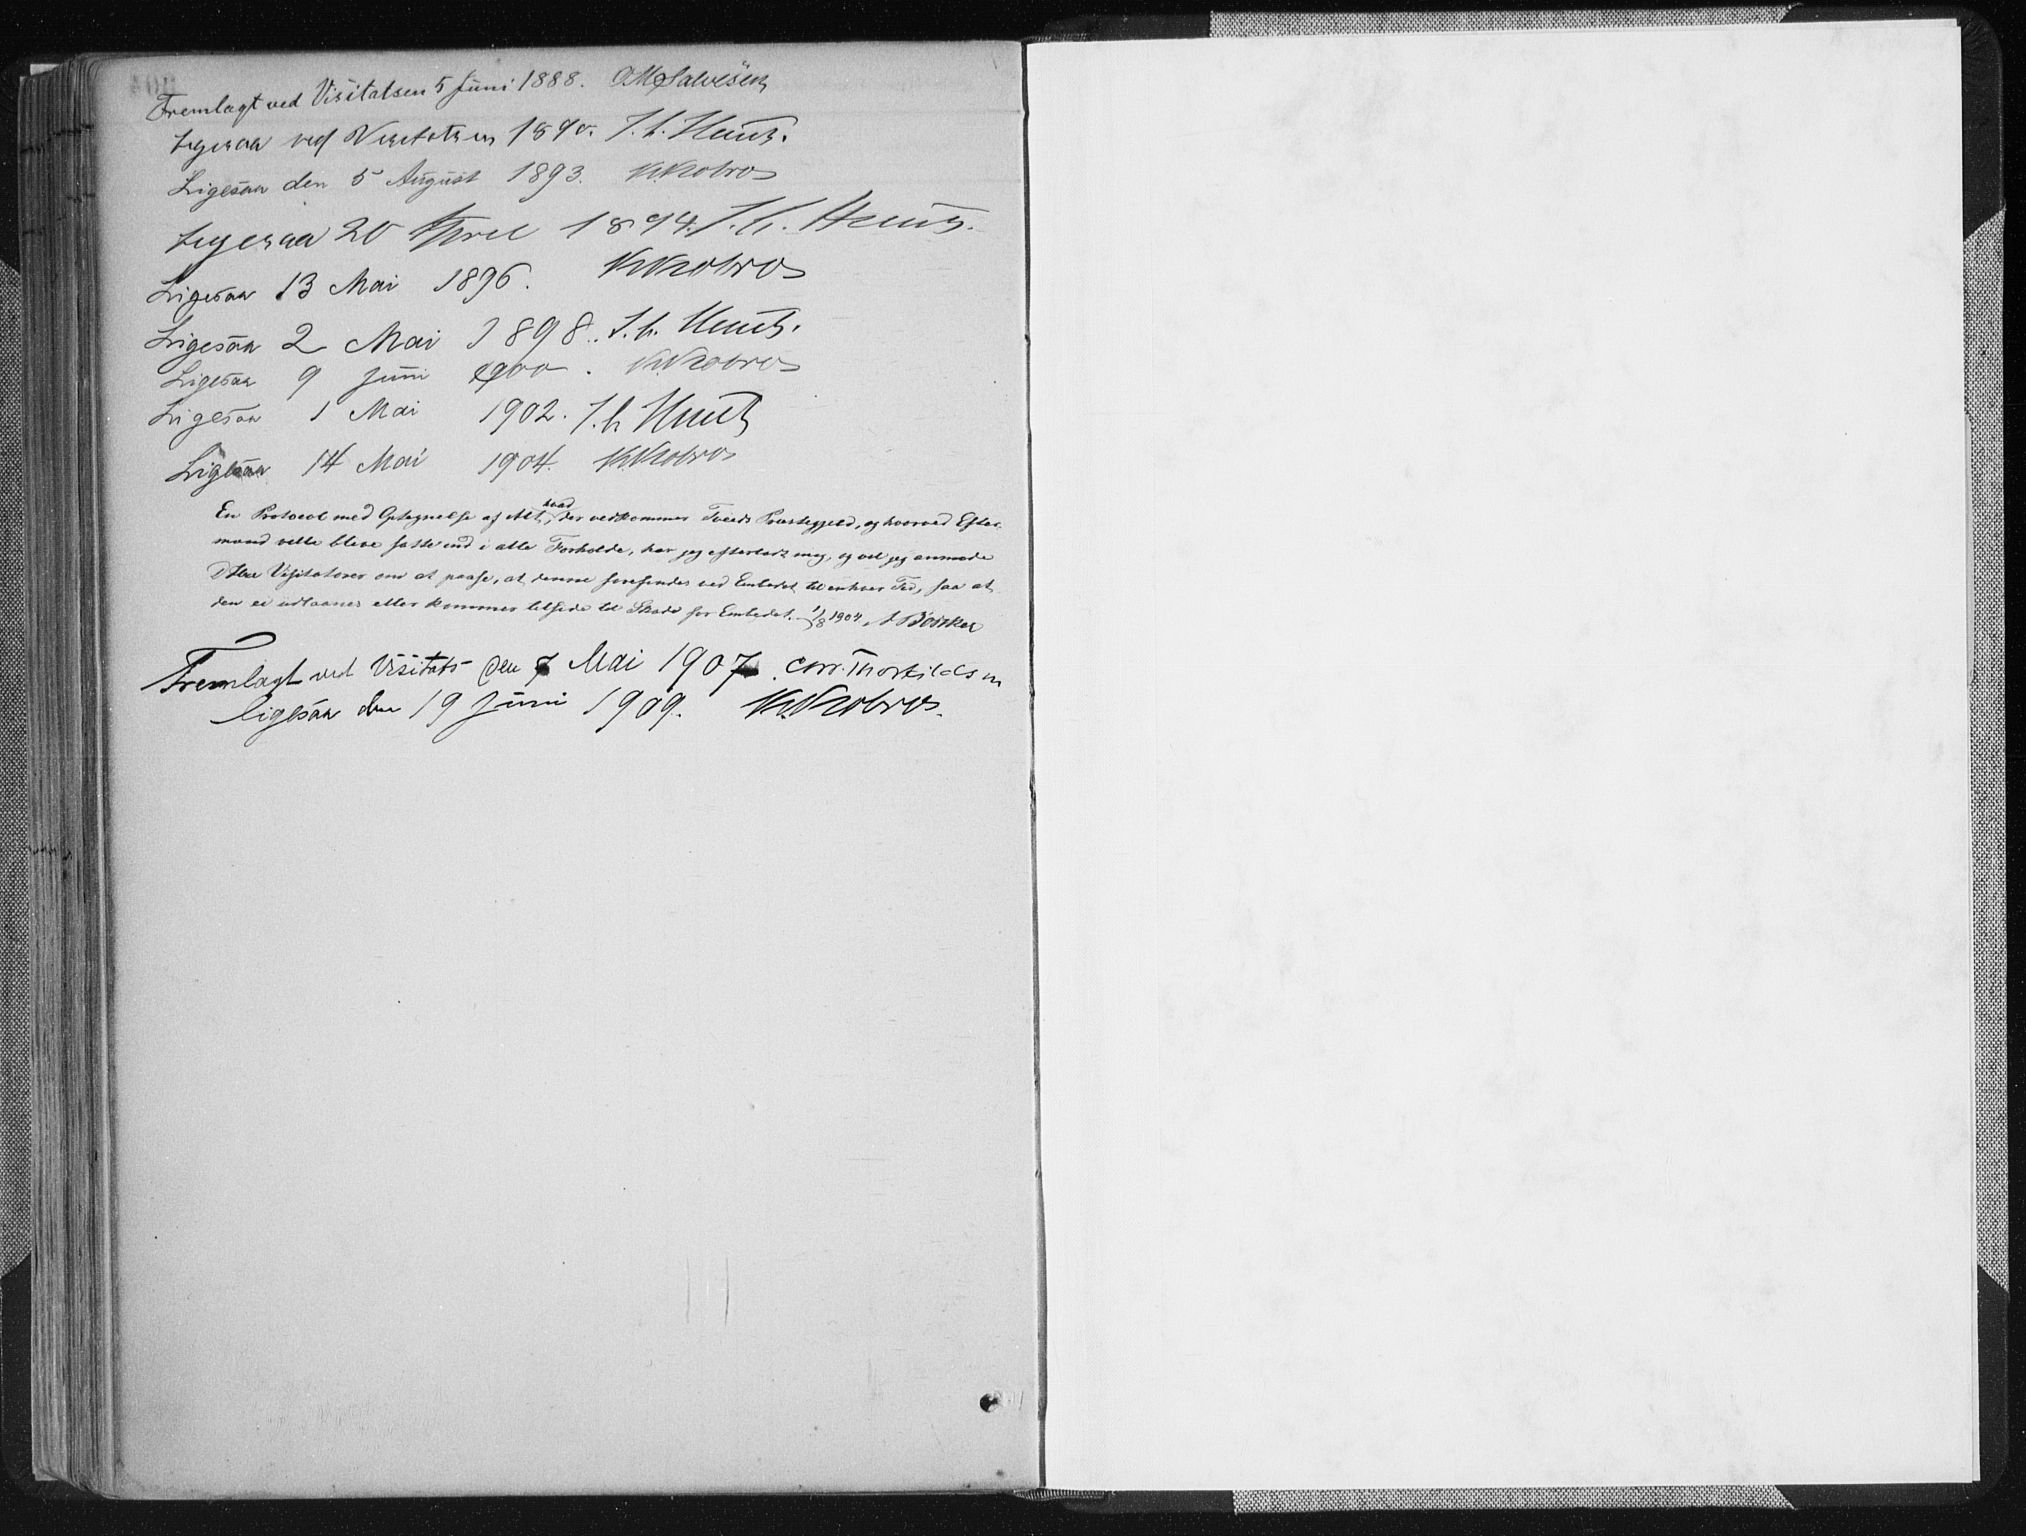 Fremlagt ved Visitatsen 5 Juni 1888. OM Salvesen
Ligesaa ved Visitatsen 1890. J. h. Heuch.
Ligesaa den 5 August 1893. K. Krobro
Ligesaa 20 April 1894. J. C. Heuch.
Ligesaa 13 Mai 1896.
Ligesaa 2 Mai 1898. J. h. Heuch.
Ligesaa 9 Juni 1900.
Ligesaa 1 Mai 1902. J. h Heuch
Ligesaa 14 Mai 1904.
En Protocol med Optegnelse af Alt, hvad der vedkommer Tveeds Præstegjeld, og hvorved Efter-
mand vilde blive satte ind i alle Forholde, har jeg efterladt mig, og vil jeg anmode
DHrr Visitatorer om at paase, at denne forefindes ved Embedet til enhver Tid, saa at
den ei udlaanes eller kommer tilside til Skade for Embedet. 1/8 1904
Fremlagt ved Visitats den 7 Mai 1907. Chr. Thorkildsen
ligesaa den 19 Juni 1909.